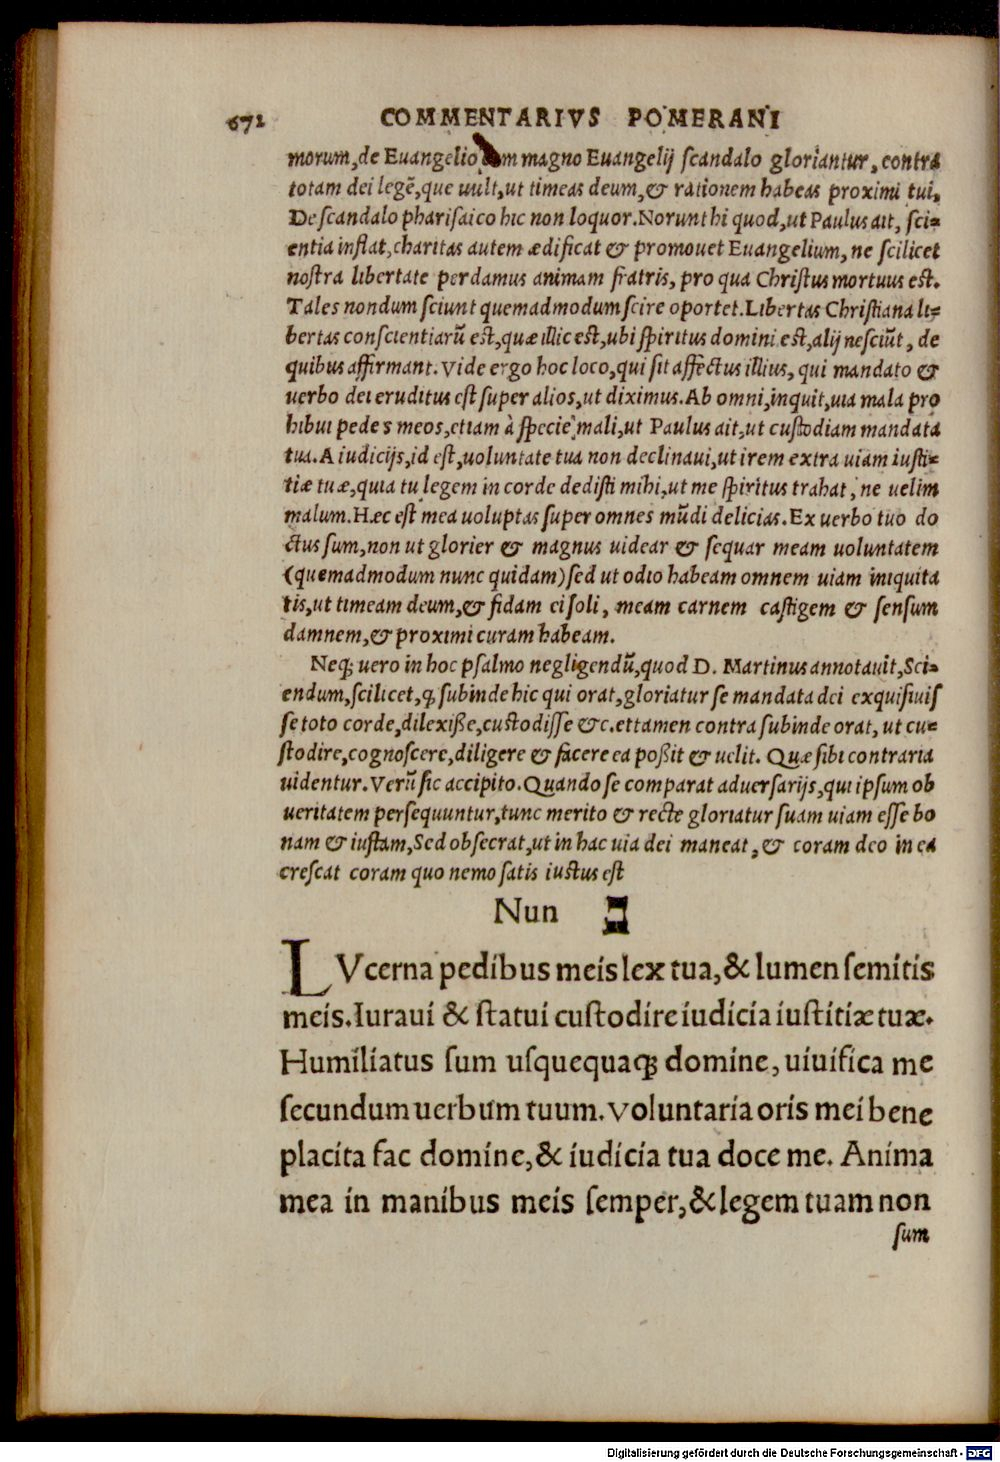 672 COMMENTARIVS POMERANI
morum, de Euangelio cum magno Euangelij ſcandalo gloriantur, contra
totam dei legẽ, que uult, ut timeas deum, & rationem habeas proximi tui.
De ſcandalo phariſaico hic non loquor. Norunt hi quod, ut Paulus ait, ſci-
entia inflat, charitas autem ædificat & promouet Euangelium, ne ſcilicet
noſtra libertate perdamus animam fratris, pro qua Chriſtus mortuus eſt.
Tales nondum ſciunt quemadmodum ſcire oportet. Libertas Chriſtiana li-
bertas conſcientiarũ eſt, quæ illic eſt, ubi ſpiritus domini eſt, alij neſciũt, de
quibus affirmant. Vide ergo hoc loco, qui ſit affectus illius, qui mandato &
uerbo dei eruditus eſt ſuper alios, ut diximus. Ab omni, inquit, uia mala pro
hibui pedes meos, etiam à ſpecie mali, ut Paulus ait, ut cuſtodiam mandata
tua. A iudicijs, id eſt, uoluntate tua non declinaui, ut irem extra uiam iuſti-
tiæ tuæ, quia tu legem in corde dediſti mihi, ut me ſpiritus trahat, ne uelim
malum. Hæc eſt mea uoluptas ſuper omnes mũdi delicias. Ex uerbo tuo do
ctus ſum, non ut glorier & magnus uidear & ſequar meam uoluntatem
(quemadmodum nunc quidam) ſed ut odio habeam omnem uiam iniquita
tis, ut timeam deum, & fidam ei ſoli, meam carnem caſtigem & ſenſum
damnem, & proximi curam habeam.
Neq; uero in hoc pſalmo negligendũ, quod D. Martinus annotauit, Sci-
endum, ſcilicet, ꝙ ſubinde hic qui orat, gloriatur ſe mandata dei exquiſiuiſ
ſe toto corde, dilexiſſe, cuſtodiſſe &c. ettamen contra ſubinde orat, ut cu-
ſtodire, cognoſcere, diligere & facere ea poßit & uelit. Quæ ſibi contraria
uidentur. Verũ ſic accipito. Quando ſe comparat aduerſarijs, qui ipſum ob
ueritatem perſequuntur, tunc merito & recte gloriatur ſuam uiam eſſe bo
nam & iuſtam, Sed obſecrat, ut in hac uia dei maneat, & coram deo in ea
creſcat coram quo nemo ſatis iuctus eſt
Nun נ
LVcerna pedibus meis lex tua, & lumen ſemitis
meis. Iuraui & ſtatui cuſtodire iudicia iuſtitiæ tuæ.
Humiliatus ſum uſquequaq; domine, uiuifica me
ſecundum uerbum tuum. Voluntaria oris mei bene
placita fac domine, & iudicia tua doce me. Anima
mea in manibus meis ſemper, & legem tuam non
ſum
Digitalisierung gefördert durch die Deutsche Forschungsgemeinschaft - DFG